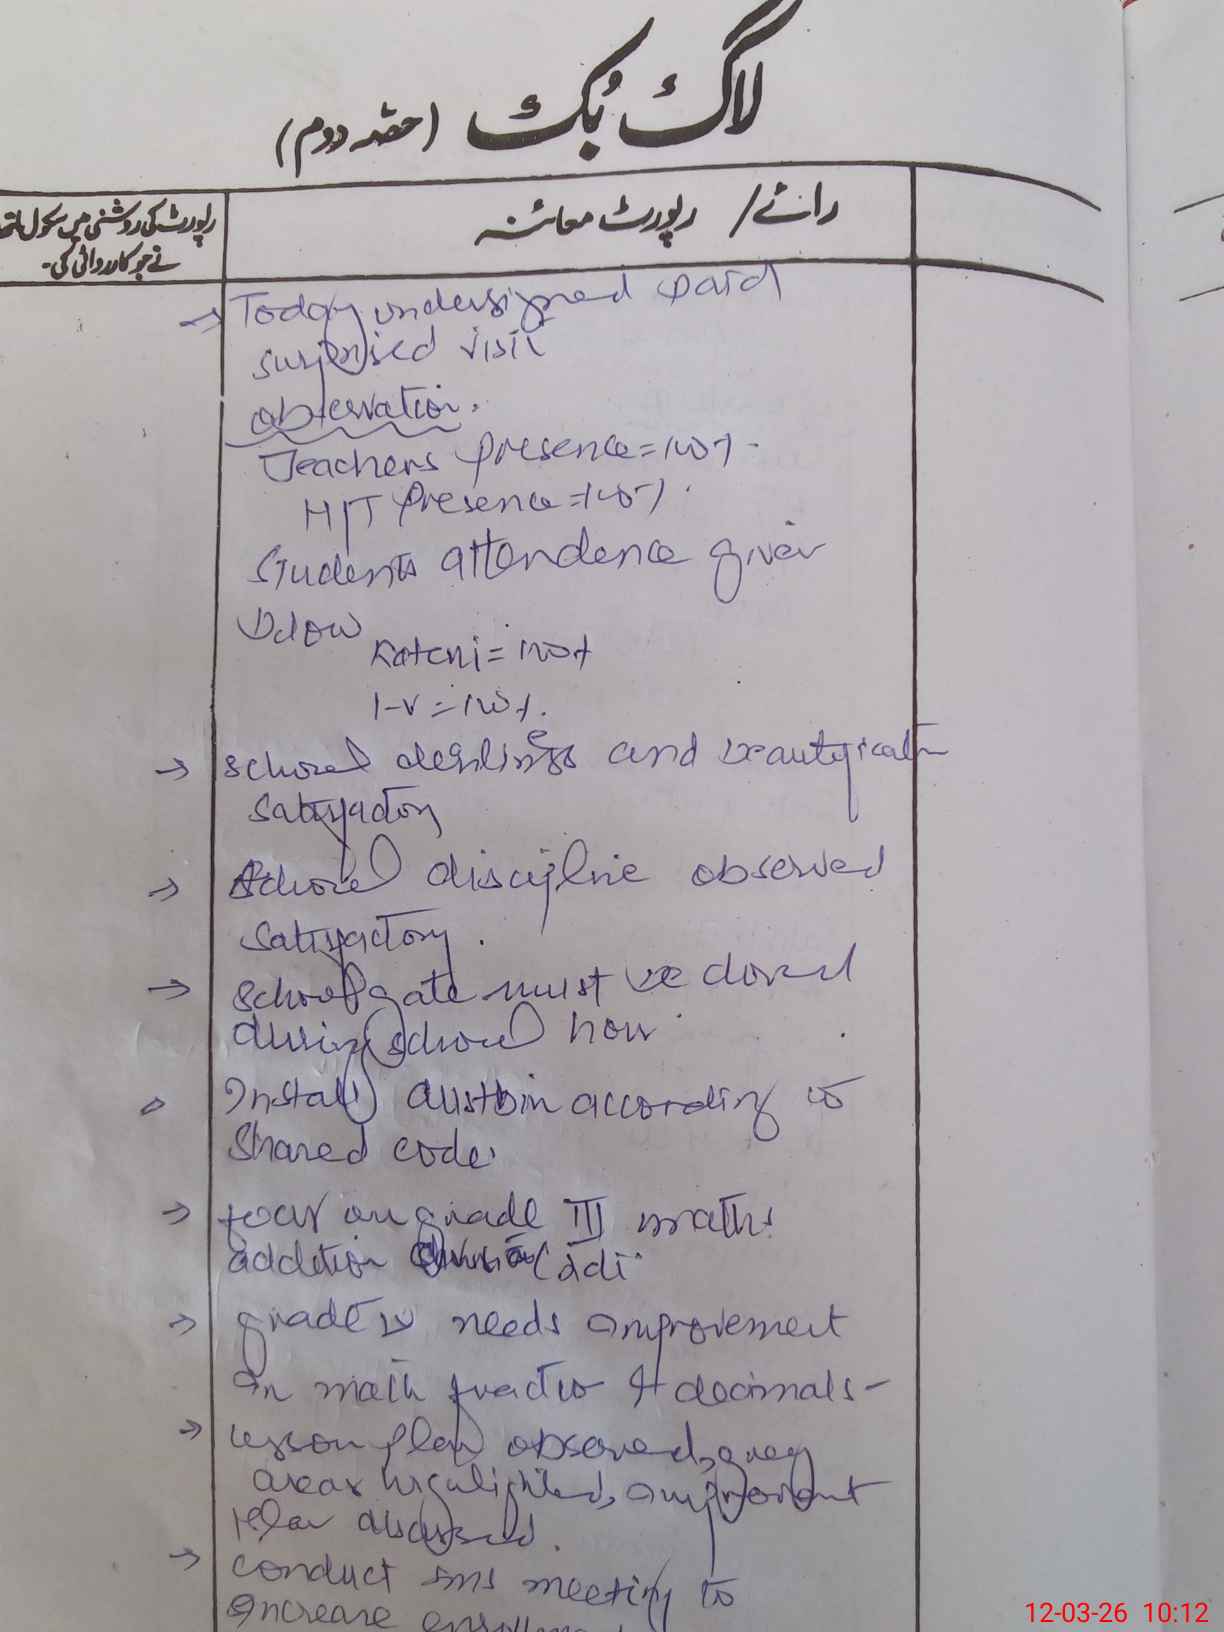 لاگ بُک (حصہ دوم)
رائے / رپورٹ معائنہ
رپورٹ کی روشنی میں سکول
نے جو کارروائی کی۔
→ Today undersigned paid
surprised visit
observation.
Teachers presence = 100%.
H/T presence = 100%.
Students attendence given
below
Katchi = 100%
1-V = 100%.
→ school and beautification
satisfactory
→ school discipline observed
satisfactory.
→ school gate must be closed
during school hour
Install dustbin according to
shared code.
→ focus on grade III maths
addition
→ grade IV needs improvement
in math & decimals -
→ lesson plan observed, grey
areas highlighted, improvement
plan discussed.
→ conduct meeting to
increase
12-03-26 10:12